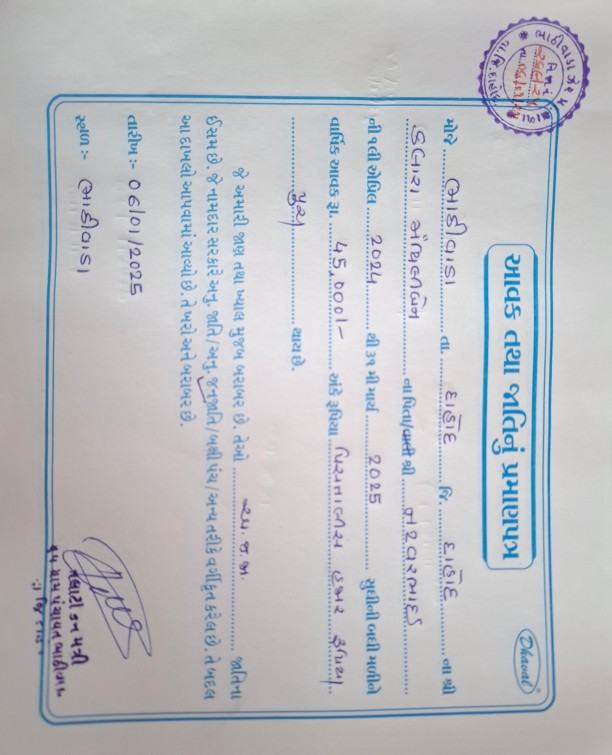 Dhaval
આવક તથા જાતિનું પ્રમાણપત્ર
મોજે ભાઠીવાડા તા. દાહોદ જિ. દાહોદ ના શ્રી
ડબારા ના પિતા/વાલી શ્રી નટવરભાઈ
ની ૧લી એપ્રિલ 2024 થી ૩૧ મી માર્ચ 2025 સુધીની બધી મળીને
વાર્ષિક આવક રૂા. 45,000/- અંકે રૂપિયા પિસ્તાળીસ હજાર રૂપિયા
પુરા થાય છે.
જે અમારી જાણ તથા ખ્યાલ મુજબ બરાબર છે. તેઓ અ.જ.જા. જાતિના
ઈસમ છે. જે નામદાર સરકારે અનુ. જાતિ/અનુ. જનજાતિ/બક્ષી પંચ/અન્ય તરીકે વર્ગીકૃત કરેલ છે. તે બદલ
આ દાખલો આપવામાં આવ્યો છે. તે ખરો અને બરાબર છે.
તારીખ :- 06/01/2025
સ્થળ :- ભાઠીવાડા
તલાટી કમ મંત્રી
ગ્રામ પંચાયત